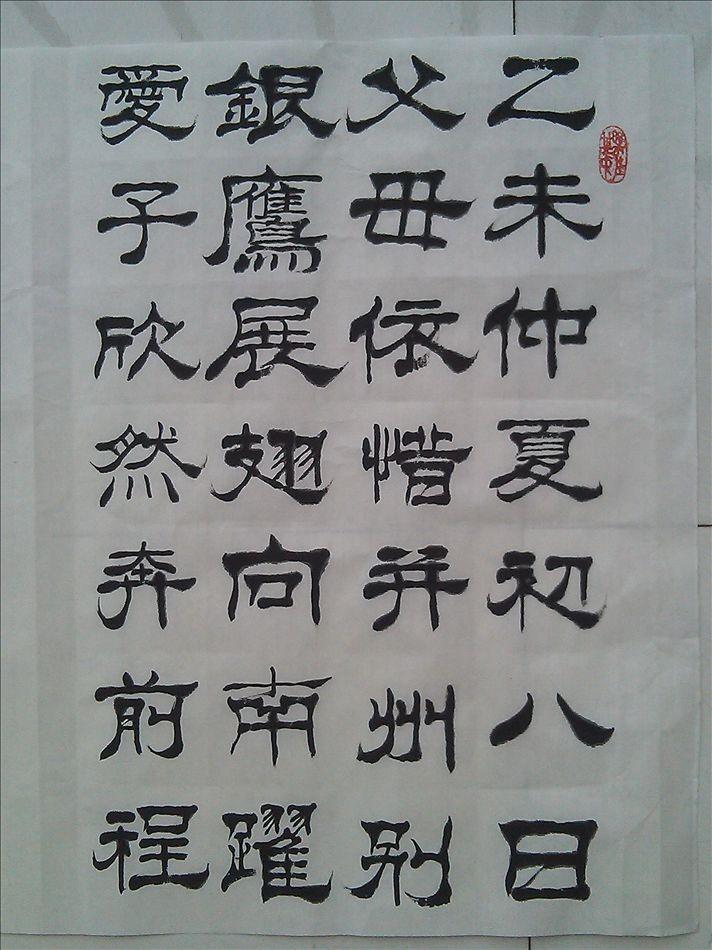 乙未仲夏初八日
父毋依惜并州别
銀鷹展翅向南躍
愛子欣然奔前程